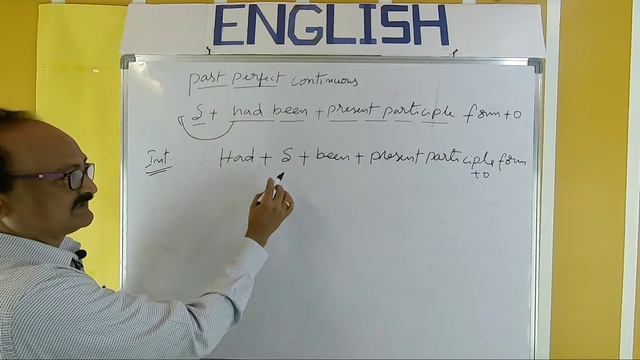 ENGLISH
past perfect continuous
S + had been + present participle form + O
Int : Had + S + been + present participle form
+ O